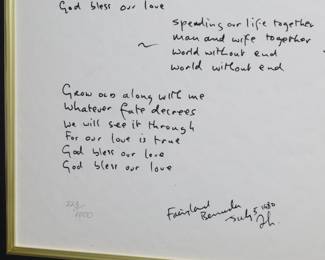 God bless our love
spending our life together
man and wife together
~ world without end
world without end
Grow old along with me
Whatever fate decrees
we will see it through
For our love is true
God bless our love
God bless our love
Fairylands
Bermuda
July 5 1980
/1000